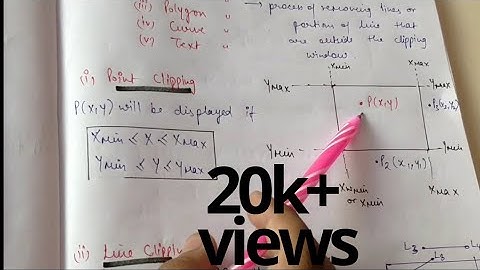 (iii) Polygon "
(iv) Curve "
(v) Text "
→ process of removing lines or
portion of line that
are outside the clipping
window.
(i) Point Clipping
P(x,y) will be displayed if
XMin ≤ X ≤ XMax
YMin ≤ Y ≤ YMax
XMin
XMax
YMax
YMax
P(x,y)
P3(x2,y2)
YMin
YMin
P2(x1,y1)
XMin
or XMin
XMax
20k+
views
(ii) Line Clipping
L3